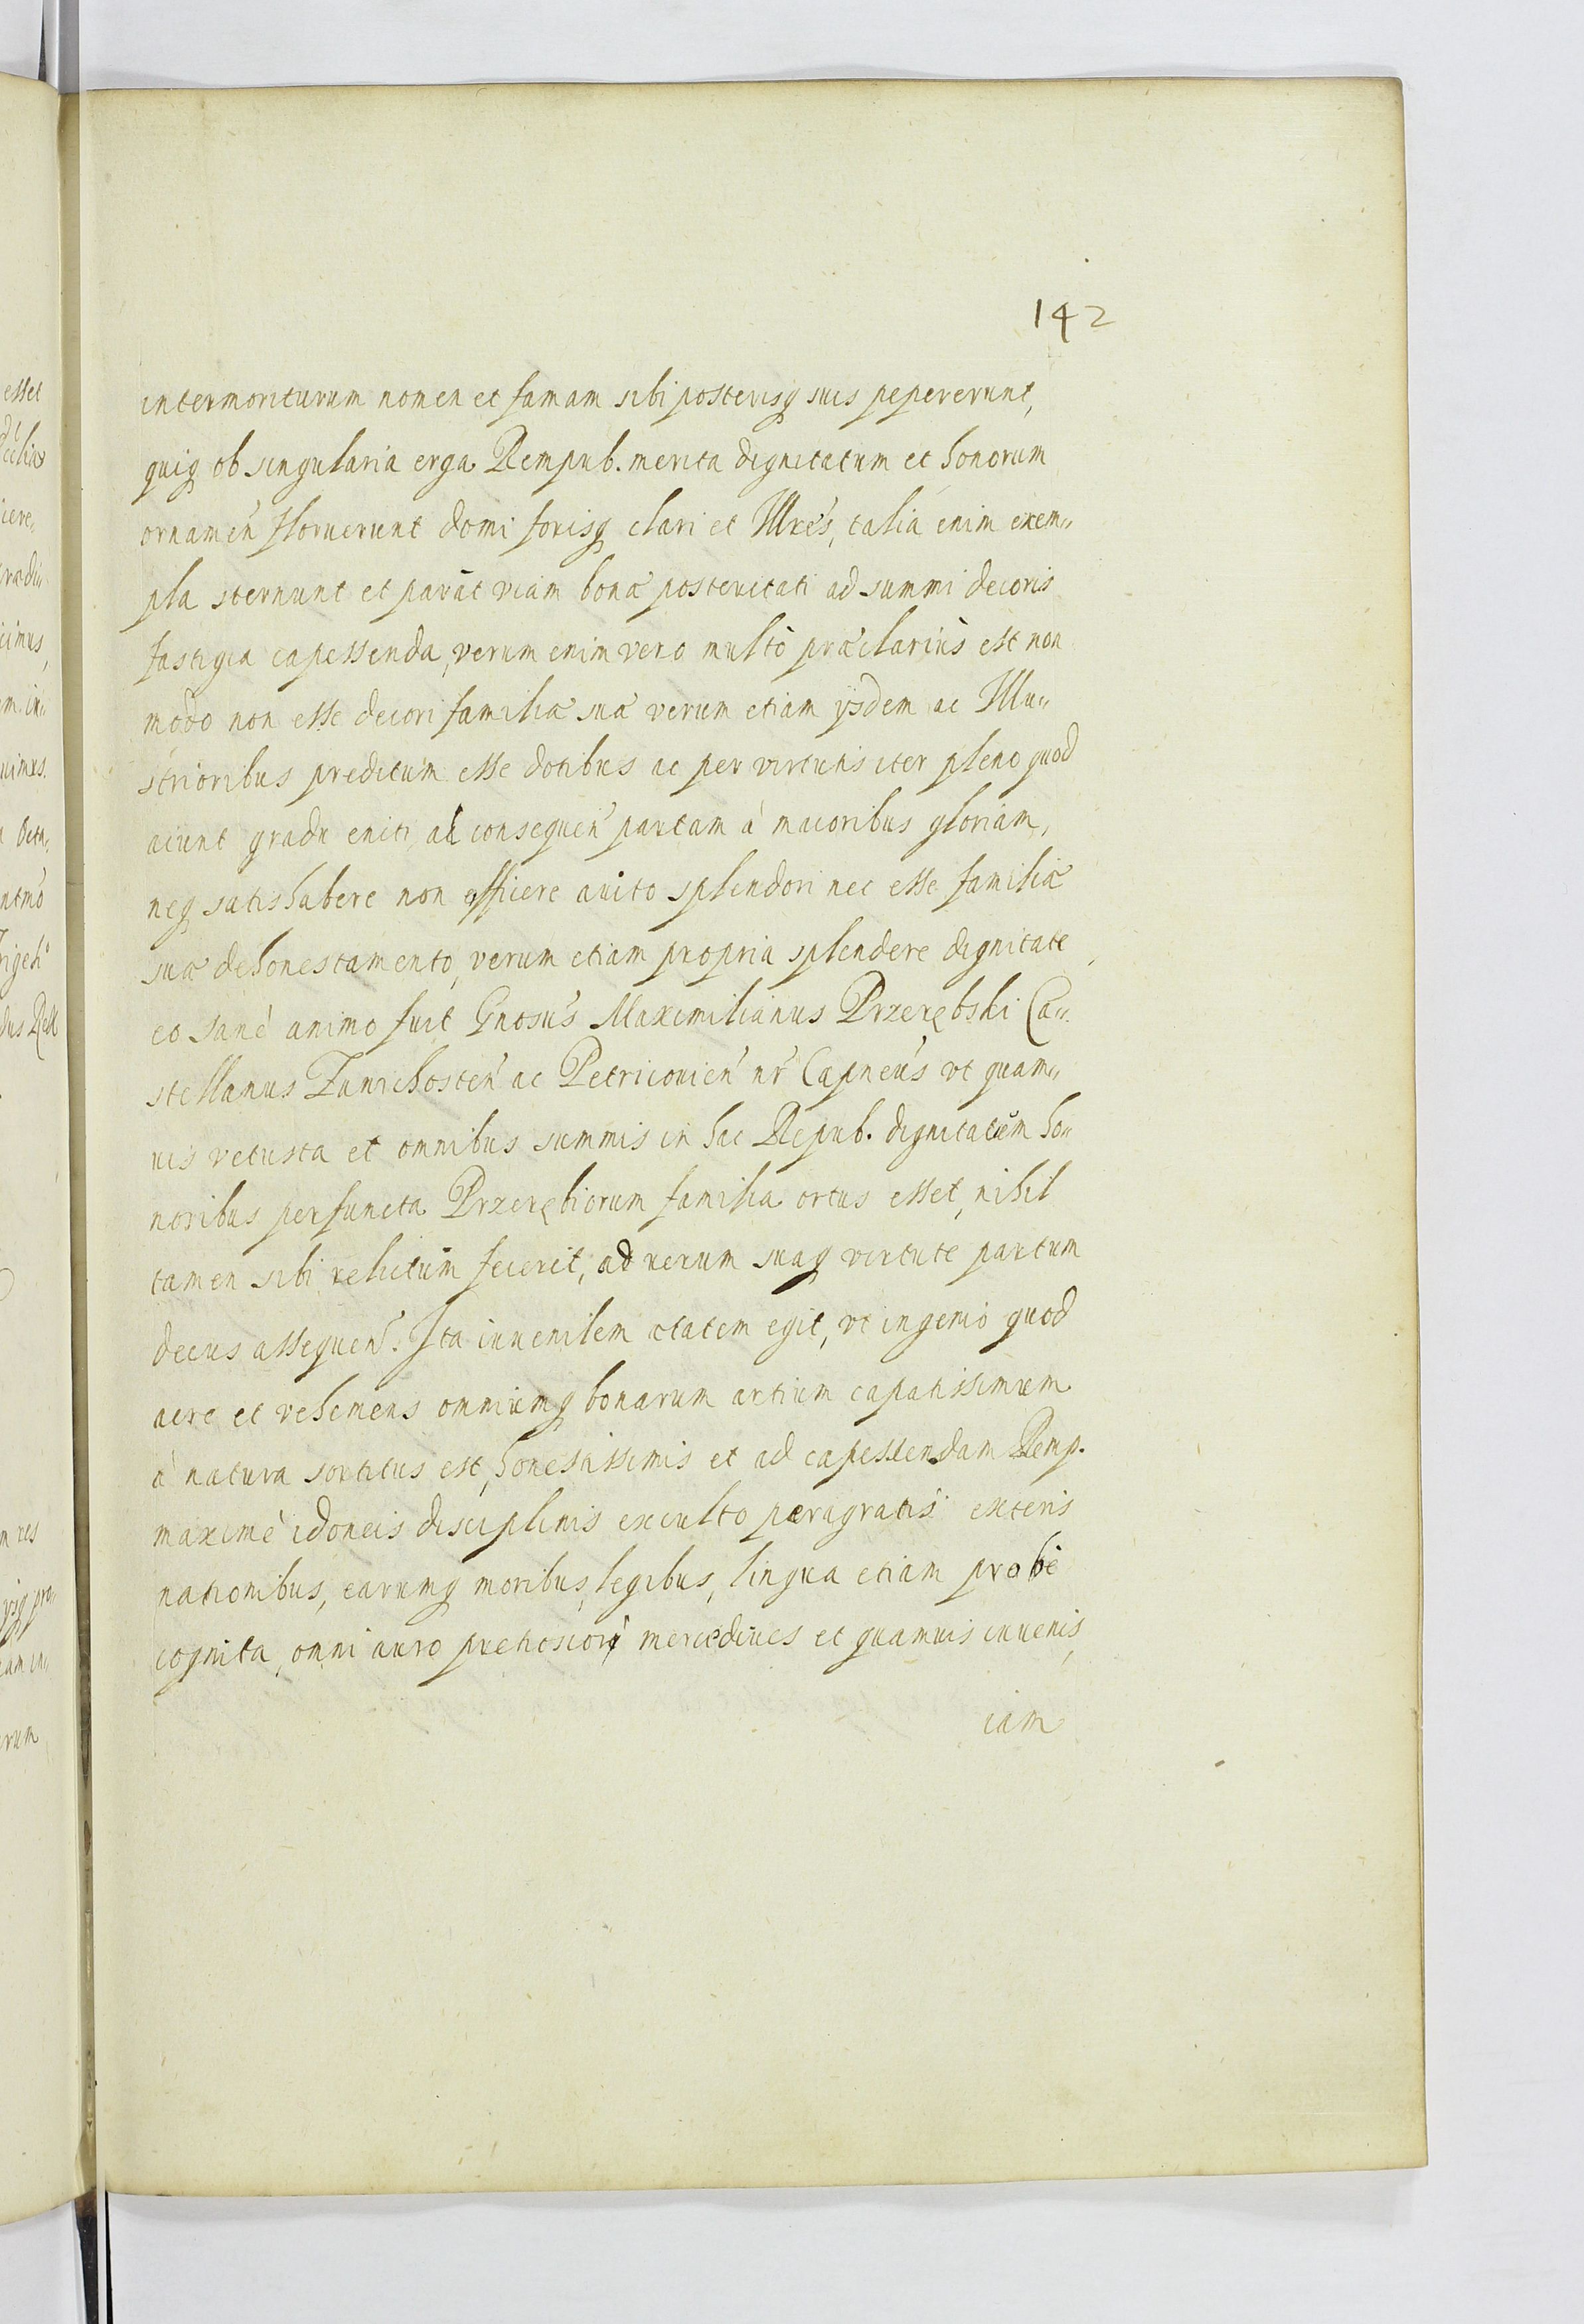 142
intermoriturum nomen et famam sibi posterisq suis pepererunt,
quiq ob singularia erga Rempub. merita dignitatum et honorum
ornamen̄ floruerunt domi forisq clari et Illres̄, talia enim exem„
pla sternunt et parāt viam bonæ posteritati ad summi decoris
fastigia capessenda, verum enim vero multò præclariùs est non
modo non esse decori familiæ suæ verum etiam ijsdem ac Illu„
strioribus preditum esse dotibus ac per virtutis iter pleno quod
aiunt gradu eniti ad consequen̄ partam à maioribus gloriam,
neq satis habere non officere auito splendori nec esse familiæ
suæ dehonestamento, verum etiam propria splendere dignitate,
eo sanè animo fuit Gnosus̄ Maximilianus Przerębski Ca„
stellanus Zawichosten̄ ac Petricouien̄ nr̄ Capneus̄ vt quam„
uis vetusta et omnibus summis in hac Repub. dignitatum ho„
noribus perfuncta Przerębiorum familia ortus esset, nihil
tamen sibi relictum fecerit, ad verum suaq virtute partum
decus assequen̄. Ita iuuenilem ætatem egit, vt ingenio quod
acre et vehemens omniumq bonarum artium capatissimum
à natura sortitus est, honestissimis et ad capessendam Remp.
maximè idoneis disciplinis exculto peragratis exteris
nationibus, earumq moribus, legibus, lingua etiam probè
cognita, omni auro pretiosiori merce diues et quamuis iuuenis,
iam